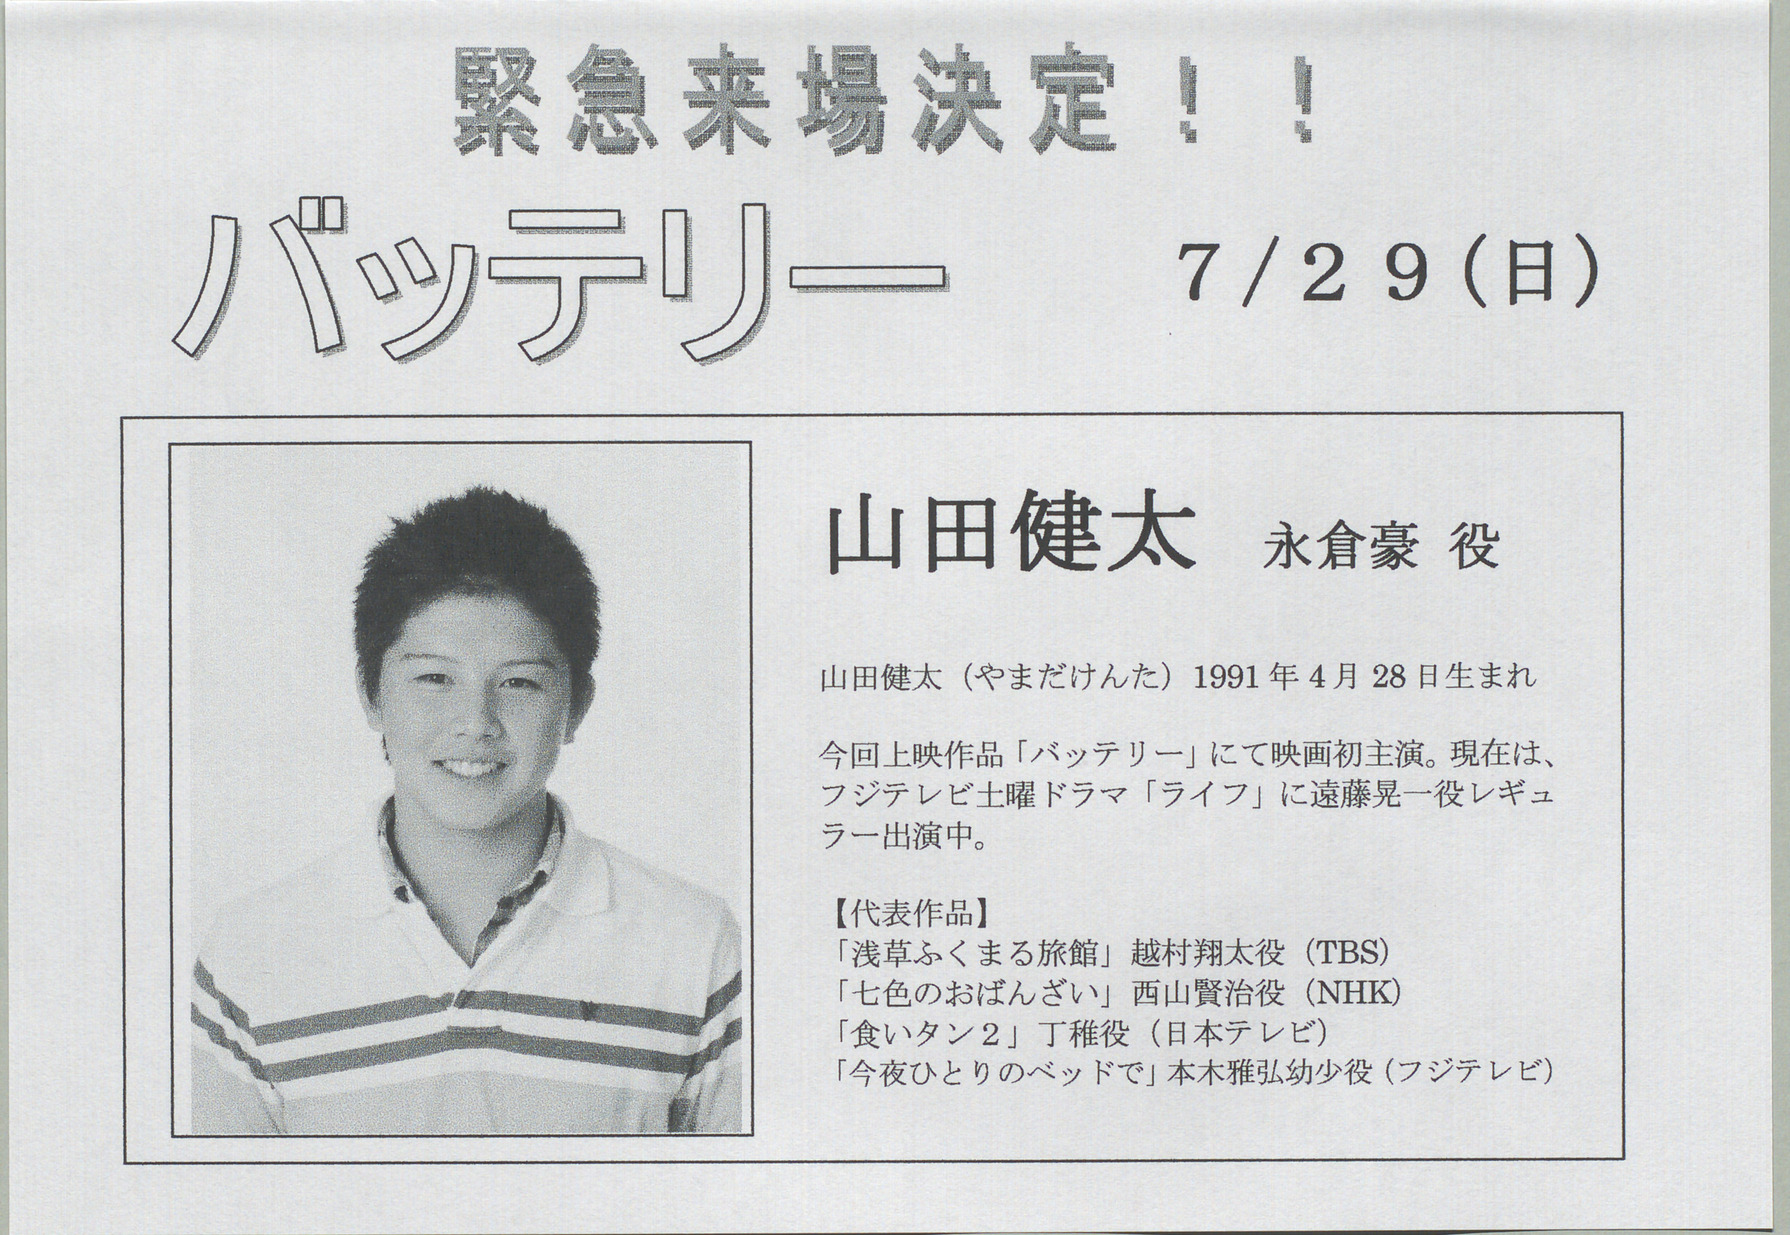 緊急来場決定！！
バッテリー
7/29(日)
山田健太 永倉豪 役
山田健太（やまだけんた）1991年4月28日生まれ
今回上映作品「バッテリー」にて映画初主演。現在は、
フジテレビ土曜ドラマ「ライフ」に遠藤晃一役レギュ
ラー出演中。
【代表作品】
「浅草ふくまる旅館」越村翔太役（TBS）
「七色のおばんざい」西山賢治役（NHK）
「食いタン２」丁稚役（日本テレビ）
「今夜ひとりのベッドで」本木雅弘幼少役（フジテレビ）